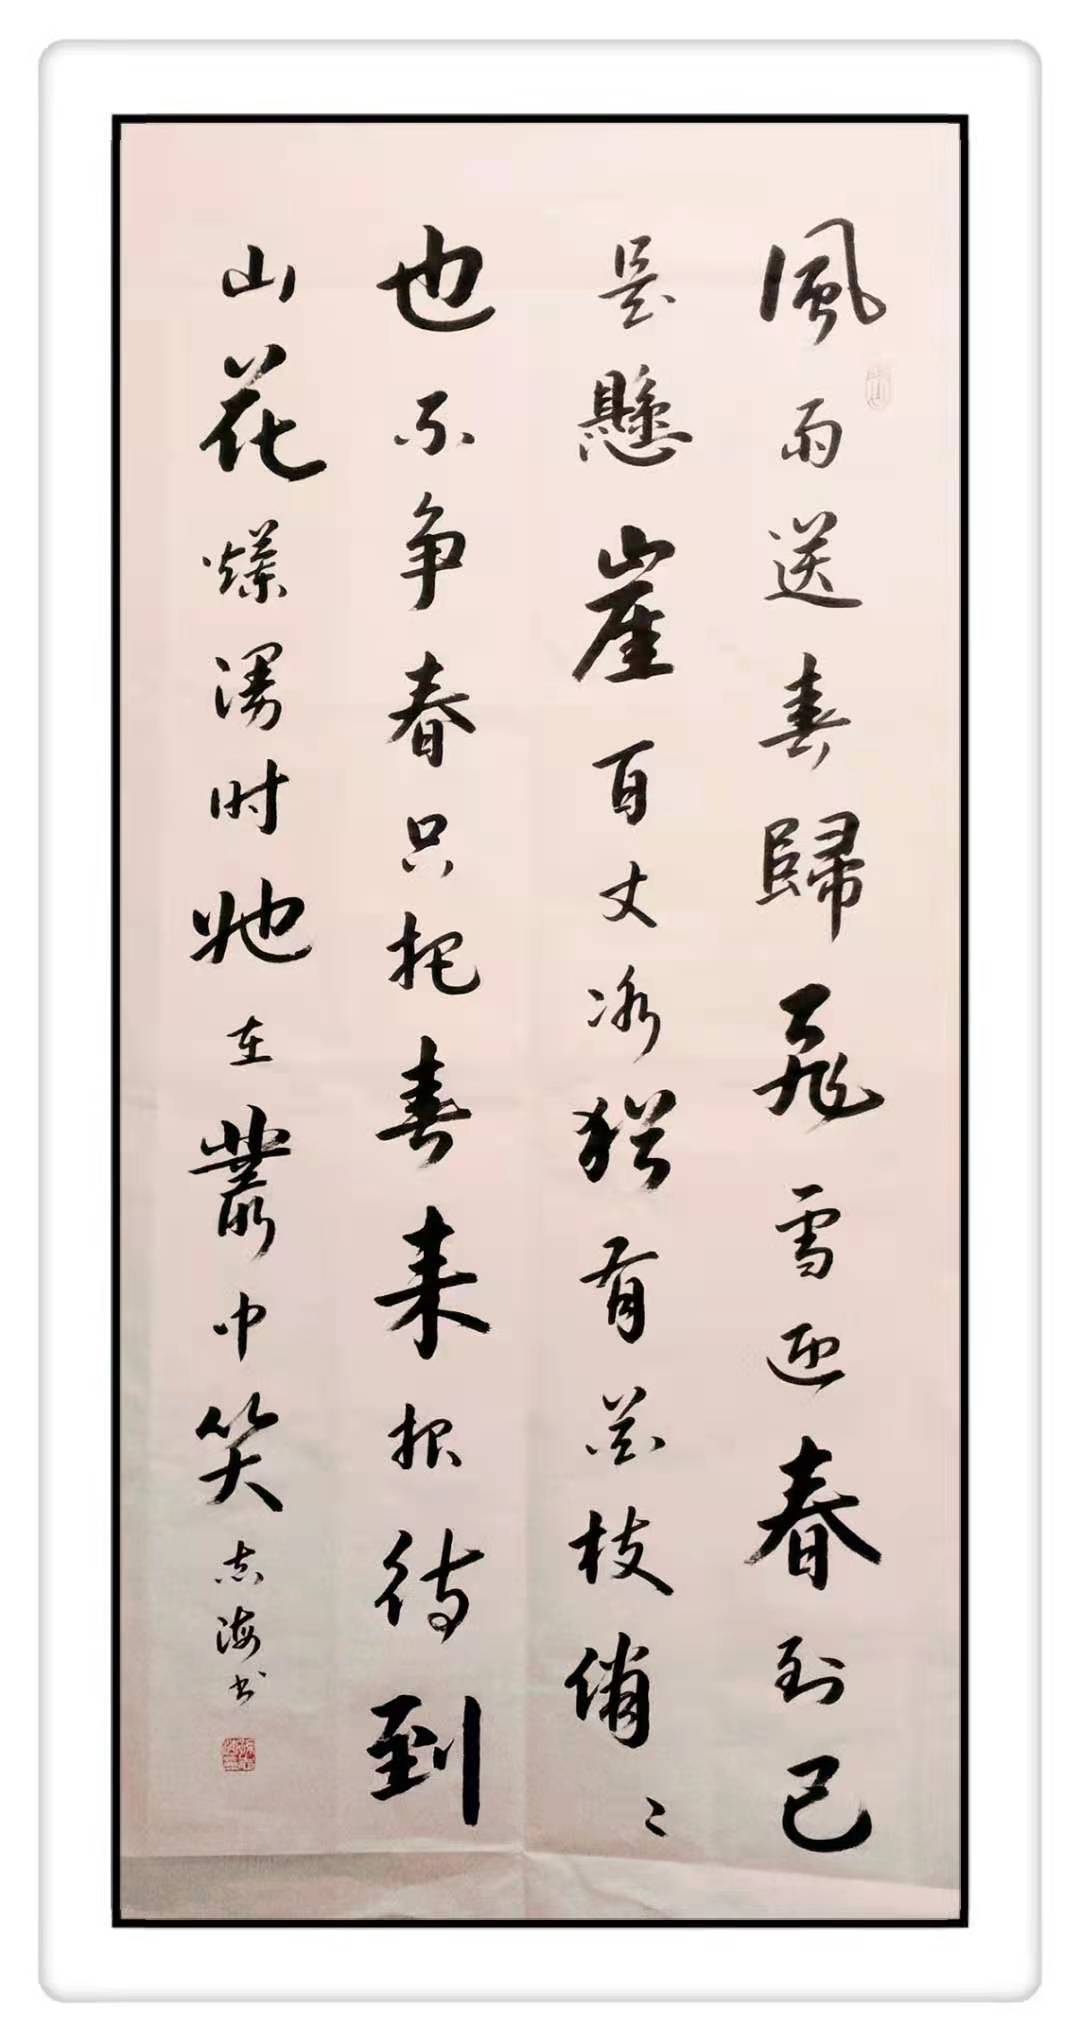 風雨送春歸飛雪迎春到已
是懸崖百丈冰猶有花枝俏〻
也不争春只把春来报待到
山花爛漫时她在叢中笑志海书